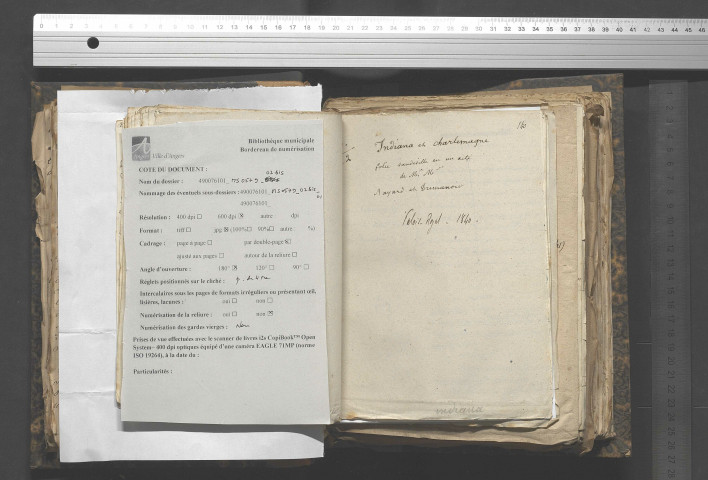 Ville d'Angers
Bibliothèque municipale
Bordereau de numérisation
COTE DU DOCUMENT :
02 bis
Nom du dossier : 490076101_ MS 0579_
Nommage des éventuels sous-dossiers : 490076101_ MS 0579_02 bis_
490076101_
Résolution : 400 dpi ☐ 600 dpi ☒ autre : dpi
Format : tiff ☐ jpg ☒ (100% ☐ 90% ☐ autre : %)
Cadrage : page à page ☐ par double-page ☒
ajusté aux pages ☐ autour de la reliure ☐
Angle d'ouverture : 180° ☒ 120° ☐ 90° ☐
Réglets positionnés sur le cliché :
Intercalaires sous les pages de formats irréguliers ou présentant
lisières, lacunes : oui ☐ non ☐
Numérisation de la reliure : oui ☐ non ☒
Numérisation des gardes vierges : non
Prises de vue effectuées avec le scanner de livres i2s CopiBook™ Open
System– 400 dpi optiques équipé d'une caméra EAGLE 71MP (norme
ISO 19264), à la date du :
Particularités :
160
Indiana et Charlemagne
folie vaudeville en un acte
de Mrs
Bayard et Dumanoir
Palais Royal. 1840.
indiana